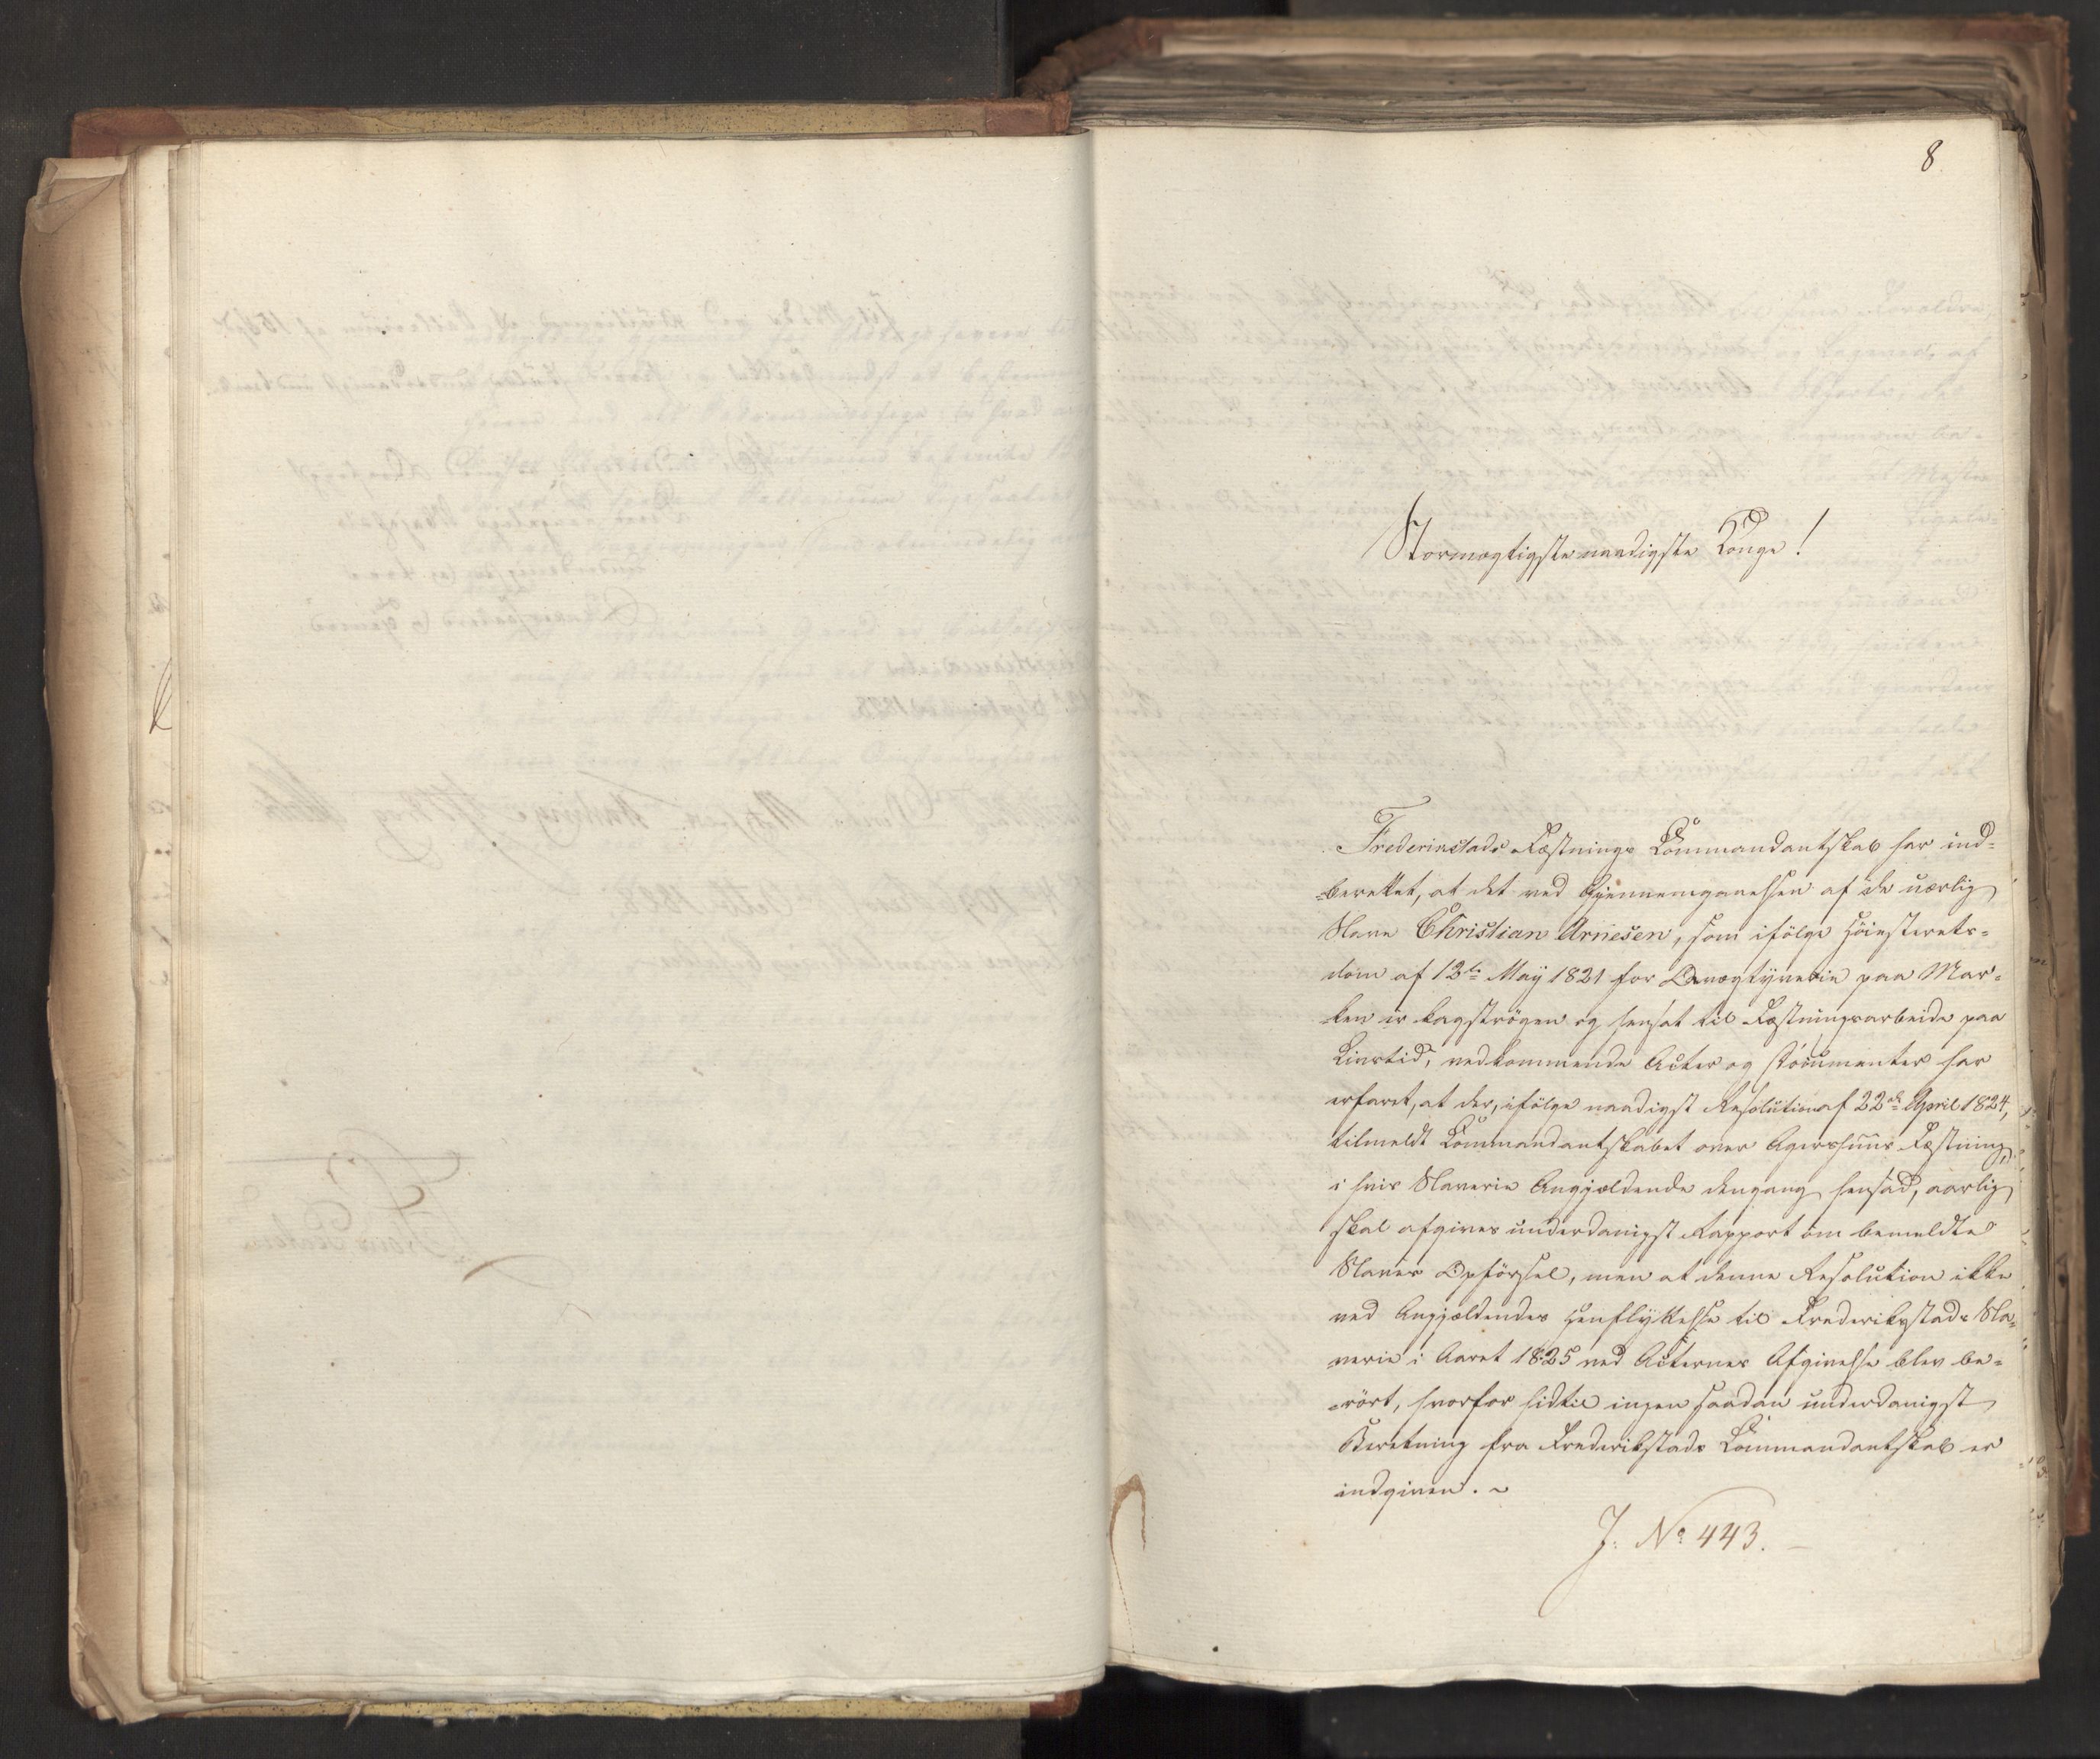 8
Stormægtigste naadigste Konge!
Frederikstads Fæstnings Commandantskab har ind=
=berettet, at det ved Gjennemganelsen af de uærlig
Slave Christian Arnesen, som ifölge Höiesterets=
dom af 12te Maÿ 1821 for Qvægtyverie paa Mar=
ken er kagströgen og hensat til Fæstningsarbeide paa
Livstid, vedkommende Acter og Documenter har
erfaret, at der, ifölge naadigst Resolution af 22de April 1824,
tilmeldt Commandantskabet over Agershuus Fæstning,
i hvis Slaverie Angjældende dengang hensad, aarlig
skal afgives underdanigst Rapport om bemeldte
Slaves Opförsel, men at denne Resolution ikke
ved Angjældendes Henflyttelse til Frederikstads Sla=
=verie i Aaret 1825 ved Acternes Afgivelse blev be=
=rört, hvorfor hidtil ingen saadan underdanigst
Beretning fra Frederikstads Commandantskab er
indgiven. ~
J: No 443. –